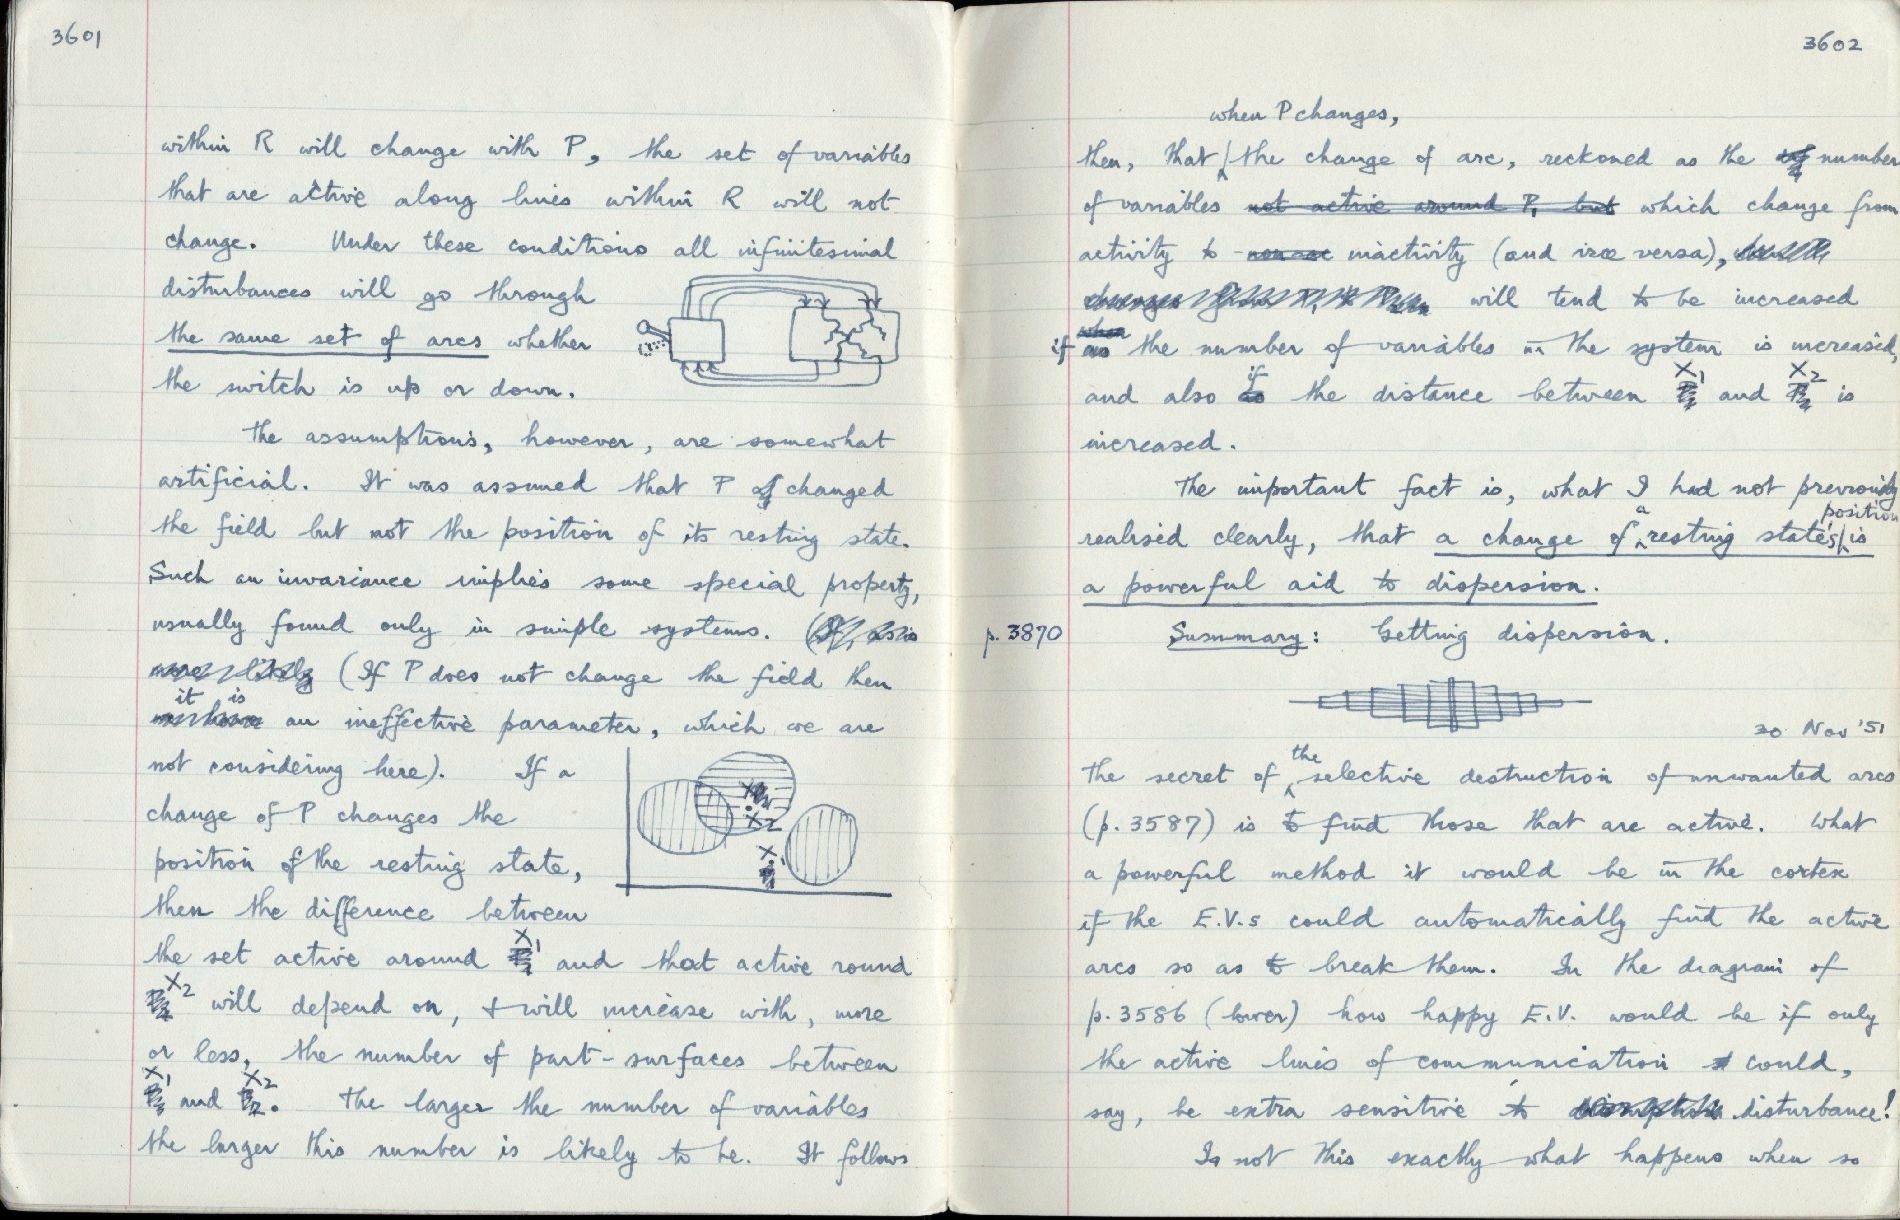 3601
within R will change with P, the set of variables
that are active along lines within R will not
change. Under these conditions all infinitesimal
disturbances will go through
the same set of arcs whether
the switch is up or down.
The assumptions, however, are somewhat
artificial. It was assumed that P changed
the field but not the position of its resting state.
Such an invariance implies some special property,
usually found only in simple systems. (If, as is
more likely (If P does not change the field then
it is
an ineffective parameter, which we are
not considering here). If a
change of P changes the
position of the resting state,
then the difference between
the set active around X1 and that active round
X2 will depend on, & will increase with, more
or less, the number of part-surfaces between
X1 and X2. The larger the number of variables
the larger this number is likely to be. It follows
X2
X1
3602
when P changes,
then, that the change of arc, reckoned as the number
of variables not active around P, but which change from
activity to inactivity (and vice versa),
will tend to be increased
when
if as the number of variables in the system is increased,
and also if the distance between X1 and X2 is
increased.
The important fact is, what I had not previously
realised clearly, that a change of a resting state's position is
a powerful aid to dispersion.
p. 3870
Summary: Getting dispersion.
30 Nov '51
The secret of the selective destruction of unwanted arcs
(p. 3587) is to find those that are active. What
a powerful method it would be in the cortex
if the E.V.s could automatically find the active
arcs so as to break them. In the diagram of
p. 3586 (lower) how happy E.V. would be if only
the active lines of communication could,
say, be extra sensitive to disturbance!
Is not this exactly what happens when so